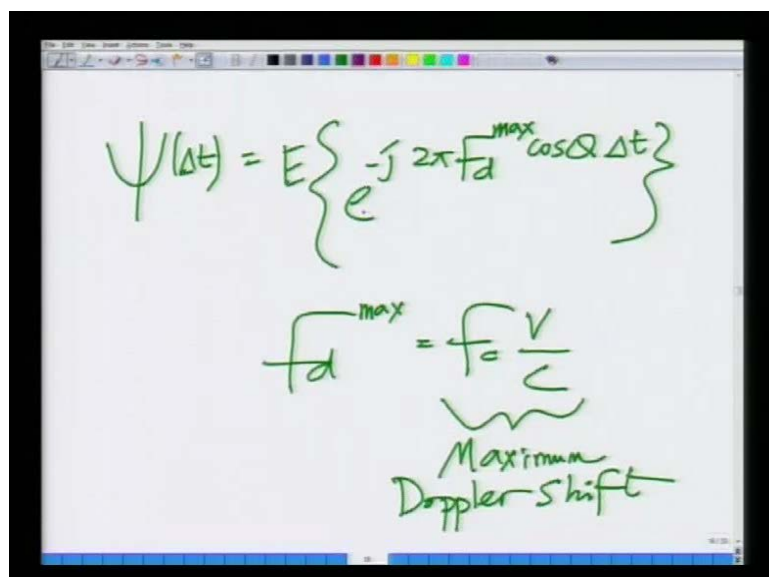 File Edit View Insert Actions Tools Help
ψ(Δt) = E{ e^{-j 2π f_d^{max} cosθ Δt} }
f_d^{max} = f_c V/C
Maximum
Doppler Shift